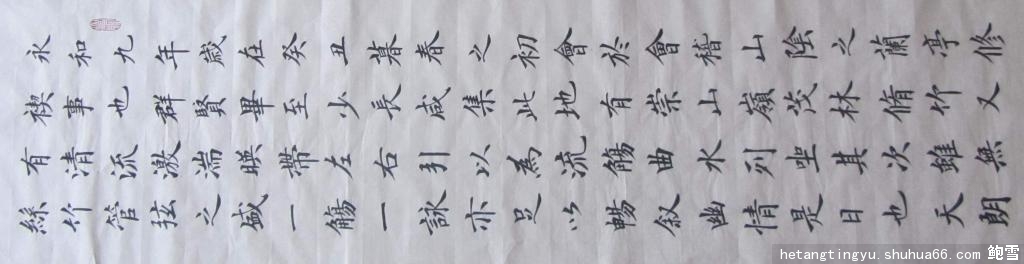 永和九年歲在癸丑暮春之初會於會稽山陰之蘭亭修
禊事也群賢畢至少長咸集此地有崇山嶺茂林脩竹又
有清流激湍暎帶左右引以為流觴曲水列坐其次雖無
絲竹管弦之盛一觴一詠亦足以暢叙幽情是日也天朗
hetangtingyu.shuhua66.com 鲍雪